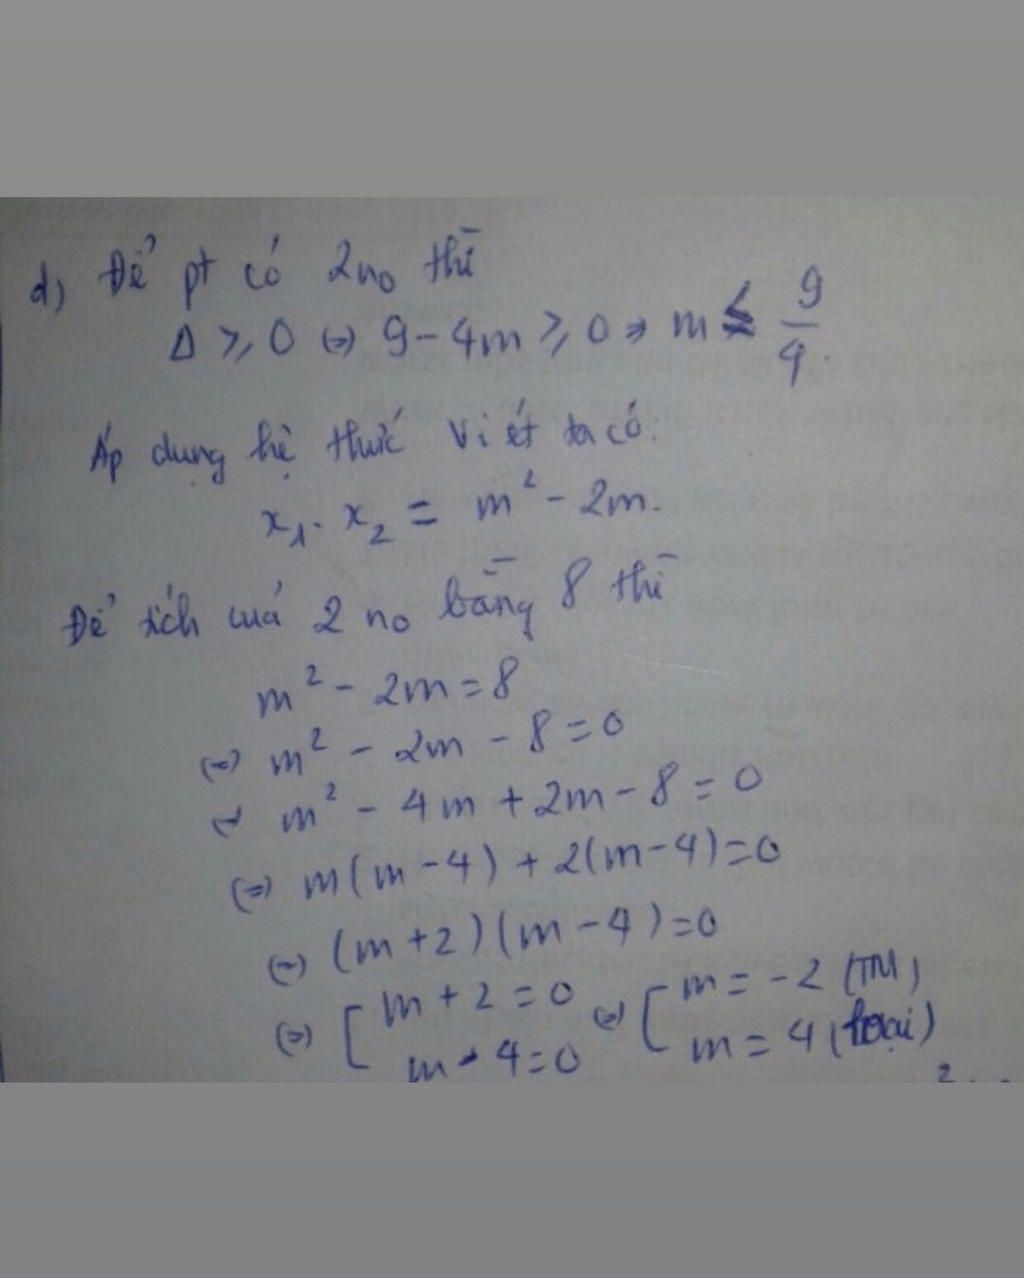 d) Để pt có 2 no thì
Δ ⩾ 0 (=) 9 - 4m ⩾ 0 => m ≤ 9/4.
Áp dụng hệ thức Vi ét ta có:
x₁. x₂ = m² - 2m.
Để tích của 2 no bằng 8 thì
m² - 2m = 8
(=) m² - 2m - 8 = 0
(=) m² - 4m + 2m - 8 = 0
(=) m(m - 4) + 2(m - 4) = 0
(=) (m + 2)(m - 4) = 0
(=) [ m + 2 = 0 (=) [ m = -2 (TM)
m - 4 = 0 m = 4 (loại)